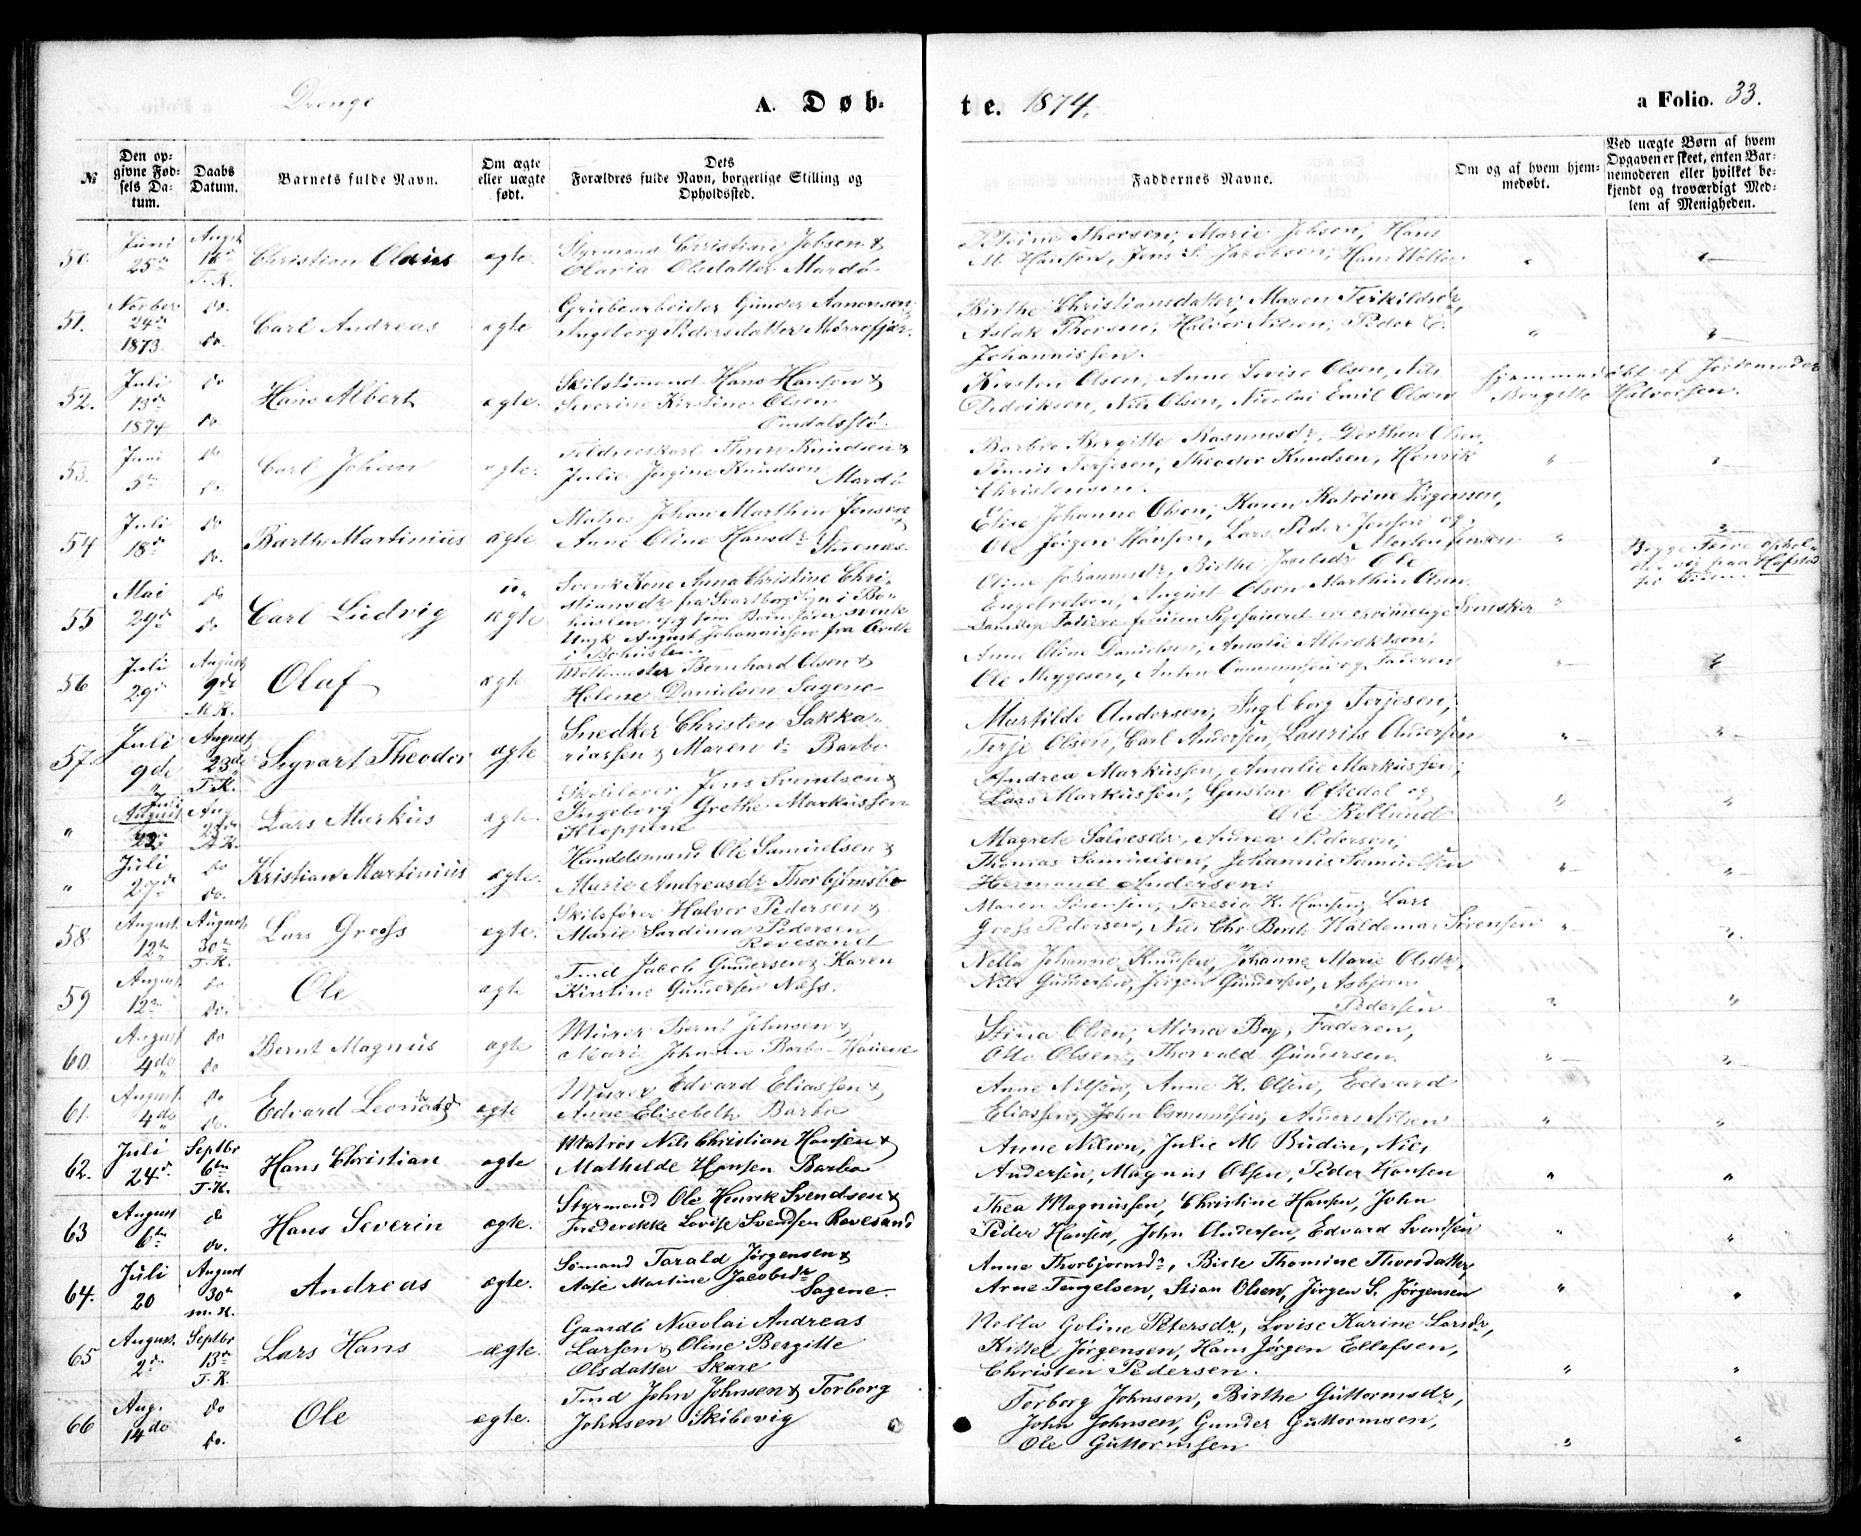 Drenge
A. Døb-
te. 1874.
a Folio. 33.
№
Den op-
givne Fød-
sels Da-
tum.
Daabs
Datum.
Barnets fulde Navn.
Om ægte
eller uægte
født.
Dets
Forældres fulde Navn, borgerlige Stilling og
Opholdssted.
Faddernes Navne.
Om og af hvem hjem-
medøbt.
Ved uægte Børn af hvem
Opgaven er skeet, enten Bar-
nemoderen eller hvilket be-
kjendt og troværdigt Med-
lem af Menigheden.
50. Juni 25de August 16de T.K. Christian Olaus ægte.
Styrmand Christian Jobsen &
Olavia Olsdatter Mardø
Thorsen, Marie Jobsen, Hans
M. Hansen, Jens S. Jacobsen, Hans
51. Novber 24de 1873. do. do. Carl Andreas ægte
Grubearbeider Gunder Aanonsen
Ingeborg Pedersdatter
Birthe Christiansdatter, Maren Terkildsdr,
Aslak Thorsen, Halvor Nilsen, Peder E.
Johannissen.
52. Juli 13de 1874 do do. Hans Albert ægte.
Skibstømmend Hans Hansen &
Severine Kirstine Olsen
Kirsten Olsen, Anne Lovise Olsen, Nils
Pedersen, Nils Olsen, Nicolai Emil Olsen
hjemmedøbt af Jordemoder
Bergitte Halvorsen.
53. Juni 5te do do. Carl Johan ægte.
Knudsen &
Julie Jørgine Knudsen
Mardø
Barbro Bergitte Rasmusdr, Dorthea Olsen,
Tønnis Terjesen, Theodor Knudsen, Henrik
Christensen.
54 Juli 18de do do. Barth Martinius ægte
Matros Johan Marthin Jensen &
Anne Oline Hansdr
Elise Johanne Olsen, Karen Katrine Jørgensen,
Ole Jørgen Hansen, Lars Peder Jensen og
Morten Jensen
55 Mai 29de do do Carl Ludvig u-
ægte
Svensk Kone Anna Christine Chri-
stiansdr fra Svartborg Sogn i Bo-
huslen og som Barnefader svensk
Ungk August Johannissen fra
i Bohuslen.
Oline Johannesdr, Birthe Ole
Engebretsen, August Olsen Marthin Olsen
Svensker
Begge Føire ophol-
der sig paa Hafstad
56 Juli 29de August 9de M.K. Olaf ægte
Møllemester Bernhard Olsen &
Helene Danielsen Sagene
Anne Oline Danielsen, Amalie Albrektsen,
Ole Thygesen, Anton og Faderen
57. Juli 9de August 23de T.K. Sigvart Theodor ægte
Snedker Christen Sakka-
riassen & Maren do Barbo
Mathilde Andersen, Ingeborg Terjesen,
Terje Olsen, Carl Andersen, Laurits Andersen
" Juli August 22 Aug 23de A.K. Lars Markus ægte.
Skolelærer Jens Svendsen &
Ingeborg Grethe Markussen
Kloppene
Andrea Markussen, Amalie Markussen,
Lars Markussen, Gustav Oftedal og
Ole Rolland
" Juli 27de do do. Kristian Martinius ægte.
Handelsmand Ole Samuelsen &
Marie Andreasdr Thorbjørnsbo
Magrete Salvesdr, Aurea Pedersen,
Thomas Samuelsen, Johannis Samuelsen
Hermand Andersen.
58. August 12te August 30te T.K. Lars Gross ægte.
Skibsfører Halvor Pedersen &
Marie Sardinia Pedersen
Revesand
Maren Sørensen, Teresia K. Hansen, Lars
Gross Pedersen, Nils Chr. Berth Waldemar Sørensen
59 August 12te do do. Ole ægte
Tmd Jacob Gundersen & Karen
Kirstine Gundersen Næss.
Nella Johanne Knudsen, Johanne Marie Olsdr,
Nils Gundersen, Jørgen Gundersen, Asbjørn
Pedersen
60. August 4de do do Bernt Magnus ægte
Murer Bernt Johnsen &
Marie Johnsen Barbo
Stina Olsen, Mina Boj, Faderen,
Otto Olsen, Thorvald Gundersen.
61. August 4de do do. Edvard Leonard ægte
Murer Edvard Eliassen &
Anne Elisebeth Barbo
Anne Nilsen, Anne K. Olsen, Edvard
Eliassen, John Osmundsen, Anders Nilsen
62. Juli 24de Septbr 6te T.K. Hans Christian ægte
Matros Nils Christian Hansen &
Mathilde Hansen Barbo
Anne Nilsen, Julie M Budin, Nils
Andersen, Magnus Olsen, Peder Hansen
63 August 6te do do. Hans Severin ægte.
Styrmand Ole Henrik Svendsen &
Frederikke Lovise Svendsen Revesand
Thea Magnussen, Christine Hansen, John
Peder Hansen, John Andersen, Edvard Svendsen
64. Juli 20 August 30te M.K. Andreas ægte.
Sømand Tarald Jørgensen &
Aase Martine Jacobsdr
Sagene.
Anne Thorbjørnsdr, Birte Thomine Thorsdatter,
Arne Tengelsen, Stian Olsen, Jørgen S. Jørgensen
65 August. 2de Septbr 13de T.K. Lars Hans ægte.
Gaardb Nicolai Andreas
Larsen & Oline Bergitte
Olsdatter Skare
Nella Goline Petersdr, Lovise Karine Larsdr,
Kittel Jørgensen, Hans Jørgen Ellefsen,
Christen Pedersen.
66 Aug. 14de do do. Ole ægte.
Tmd John Johnsen & Torborg
Johnsen Skibevig
Torborg Johnsen, Birthe Guttormsdr,
John Johnsen, Gunder Guttormsen,
Ole Guttormsen